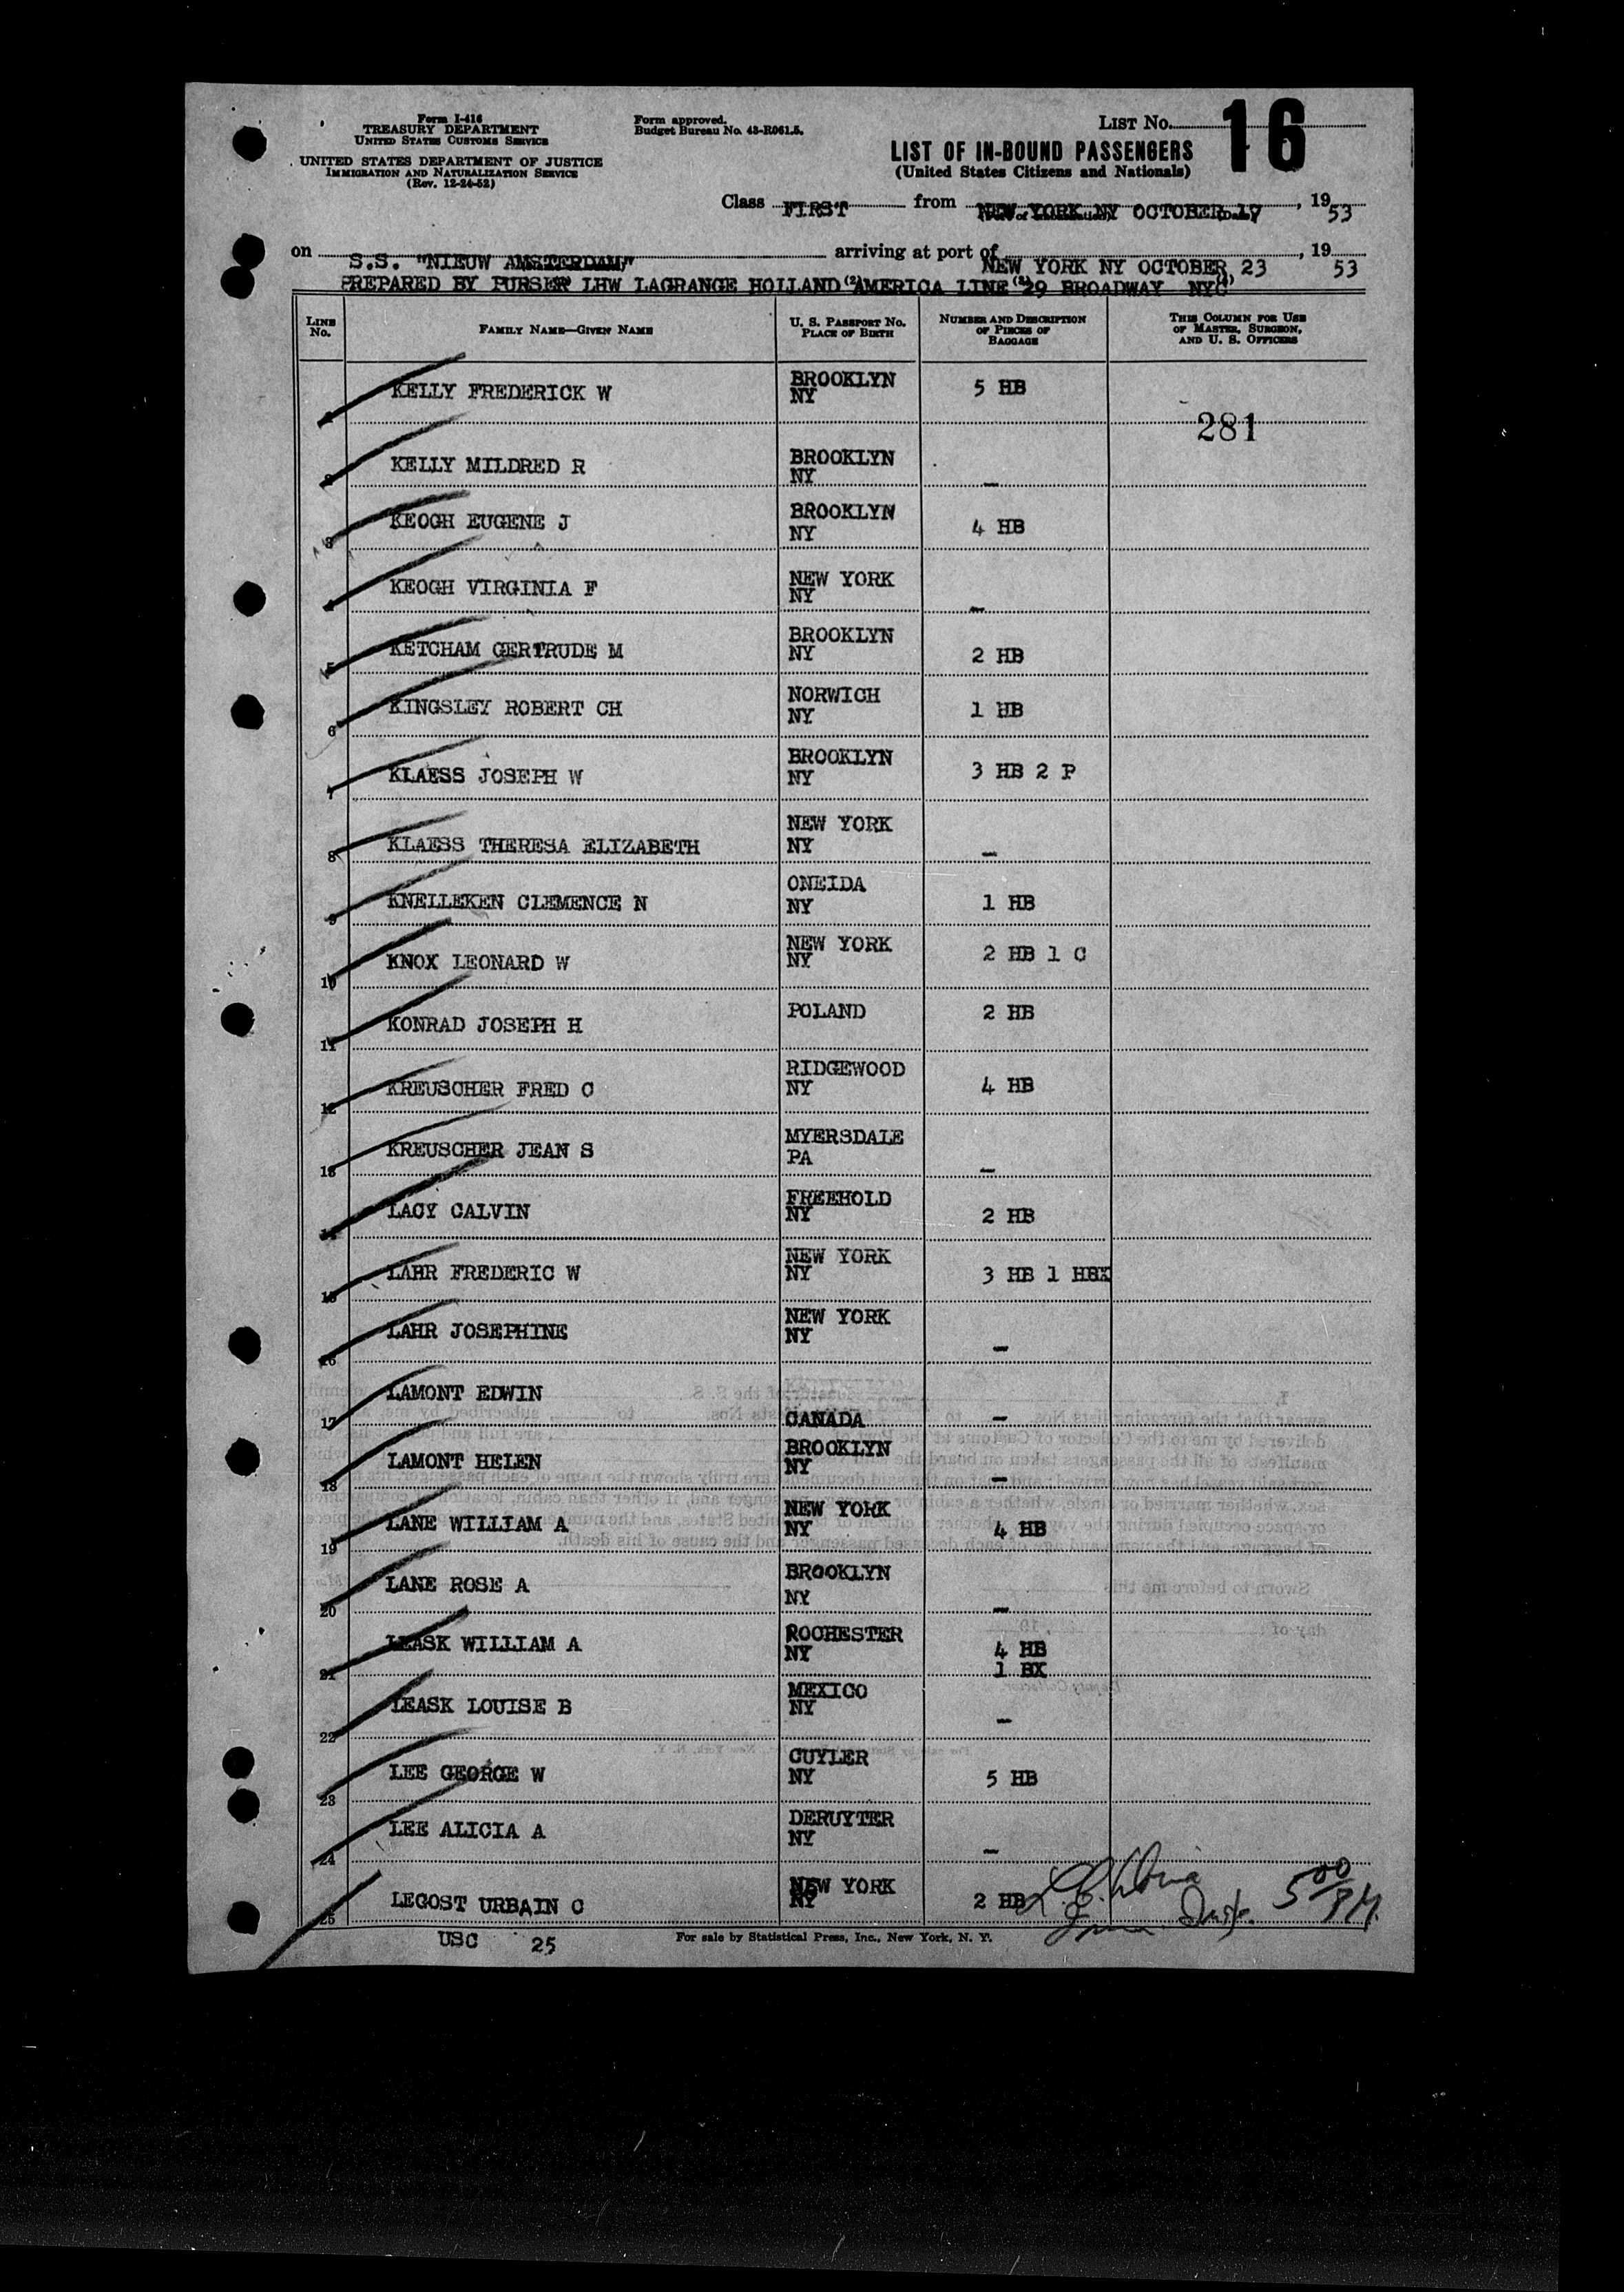 Form I-416
TREASURY DEPARTMENT
UNITED STATES CUSTOMS SERVICE
UNITED STATES DEPARTMENT OF JUSTICE
IMMIGRATION AND NATURALIZATION SERVICE
(Rev. 12-24-52)
Form approved.
Budget Bureau No. 43-R061.5.
LIST No. 16
LIST OF IN-BOUND PASSENGERS
(United States Citizens and Nationals)
Class FIRST from NEW YORK NY OCTOBER 17, 1953
on S.S. "NIEUW AMSTERDAM" arriving at port of NEW YORK NY OCTOBER 23, 1953
PREPARED BY PURSER LHW LAGRANGE HOLLAND AMERICA LINE 29 BROADWAY NYC
LINE No. FAMILY NAME—GIVEN NAME U. S. PASSPORT NO. PLACE OF BIRTH NUMBER AND DESCRIPTION OF PIECES OF BAGGAGE THIS COLUMN FOR USE OF MASTER, SURGEON, AND U. S. OFFICERS
KELLY FREDERICK W BROOKLYN NY 5 HB
281
KELLY MILDRED R BROOKLYN NY –
3 KEOGH EUGENE J BROOKLYN NY 4 HB
KEOGH VIRGINIA F NEW YORK NY –
5 KETCHAM GERTRUDE M BROOKLYN NY 2 HB
6 KINGSLEY ROBERT CH NORWICH NY 1 HB
7 KLAESS JOSEPH W BROOKLYN NY 3 HB 2 P
8 KLAESS THERESA ELIZABETH NEW YORK NY –
9 KNELLEKEN CLEMENCE N ONEIDA NY 1 HB
10 KNOX LEONARD W NEW YORK NY 2 HB 1 C
11 KONRAD JOSEPH H POLAND 2 HB
12 KREUSCHER FRED C RIDGEWOOD NY 4 HB
13 KREUSCHER JEAN S MYERSDALE PA –
14 LACY CALVIN FREEHOLD NY 2 HB
15 LAHR FREDERIC W NEW YORK NY 3 HB 1 HBX
16 LAHR JOSEPHINE NEW YORK NY –
17 LAMONT EDWIN CANADA –
18 LAMONT HELEN BROOKLYN NY –
19 LANE WILLIAM A NEW YORK NY 4 HB
20 LANE ROSE A BROOKLYN NY –
21 LEASK WILLIAM A ROCHESTER NY 4 HB 1 BX
22 LEASK LOUISE B MEXICO NY –
23 LEE GEORGE W CUYLER NY 5 HB
24 LEE ALICIA A DERUYTER NY –
25 LEGOST URBAIN C NEW YORK NY 2 HB
5 00 PM.
USC 25
For sale by Statistical Press, Inc., New York, N. Y.